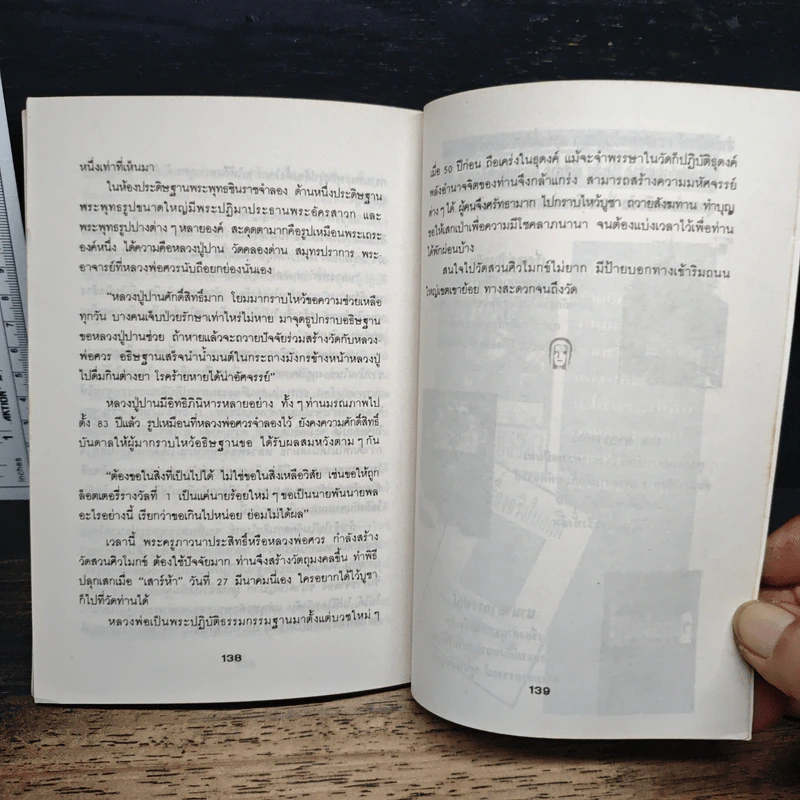 หนึ่งเท่าที่เห็นมา
ในห้องประดิษฐานพระพุทธชินราชจำลอง ด้านหนึ่งประดิษฐาน
พระพุทธรูปขนาดใหญ่มีพระปฏิมาประธานพระอัครสาวก และ
พระพุทธรูปปางต่างๆหลายองค์ สะดุดตามากคือรูปเหมือนพระเถระ
องค์หนึ่ง ได้ความคือหลวงปู่ปาน วัดคลองด่าน สมุทรปราการ พระ
อาจารย์ที่หลวงพ่อศวรนับถือยกย่องนั่นเอง
“หลวงปู่ปานศักดิ์สิทธิ์มาก โยมมากราบไหว้ขอความช่วยเหลือ
ทุกวัน บางคนเจ็บป่วยรักษาเท่าไหร่ไม่หาย มาจุดธูปกราบอธิษฐาน
ขอหลวงปู่ปานช่วย ถ้าหายแล้วจะถวายปัจจัยร่วมสร้างวัดกับหลวง-
พ่อศวร อธิษฐานเสร็จนำน้ำมนต์ในกระถางมังกรข้างหน้าหลวงปู่
ไปดื่มกินต่างยา โรคร้ายหายได้น่าอัศจรรย์”
หลวงปู่ปานมีอิทธิภินิหารหลายอย่าง ทั้งๆท่านมรณภาพไป
ตั้ง 83 ปีแล้ว รูปเหมือนที่หลวงพ่อศวรจำลองไว้ ยังคงความศักดิ์สิทธิ์
บันดาลให้ผู้มากราบไหว้อธิษฐานขอ ได้รับผลสมหวังตามๆกัน
“ต้องขอในสิ่งที่เป็นไปได้ ไม่ใช่ขอในสิ่งเหลือวิสัย เช่นขอให้ถูก
ล็อตเตอรี่รางวัลที่ 1 เป็นแค่นายร้อยใหม่ๆขอเป็นนายพันนายพล
อะไรอย่างนี้ เรียกว่าขอเกินไปหน่อย ย่อมไม่ได้ผล”
เวลานี้ พระครูภาวนาประสิทธิ์หรือหลวงพ่อศวร กำลังสร้าง
วัดสวนศิวโมกข์ ต้องใช้ปัจจัยมาก ท่านจึงสร้างวัตถุมงคลขึ้น ทำพิธี
ปลุกเสกเมื่อ “เสาร์ห้า” วันที่ 27 มีนาคมนี้เอง ใครอยากได้ไว้บูชา
ก็ไปที่วัดท่านได้
หลวงพ่อเป็นพระปฏิบัติธรรมกรรมฐานมาตั้งแต่บวชใหม่ๆ
138
เมื่อ 50 ปีก่อน ถือเคร่งในธุดงค์ แม้จะจำพรรษาในวัดก็ปฏิบัติธุดงค์
พลังอำนาจจิตของท่านจึงกล้าแกร่ง สามารถสร้างความมหัศจรรย์
ต่างๆได้ ผู้คนจึงศรัทธามาก ไปกราบไหว้บูชา ถวายสังฆทาน ทำบุญ
ขอให้เสกเป่าเพื่อความมีโชคลาภนานา จนต้องแบ่งเวลาไว้เพื่อท่าน
ได้พักผ่อนบ้าง
สนใจไปวัดสวนศิวโมกข์ไม่ยาก มีป้ายบอกทางเข้าริมถนน
ใหญ่เขตเขาย้อย ทางสะดวกจนถึงวัด
139